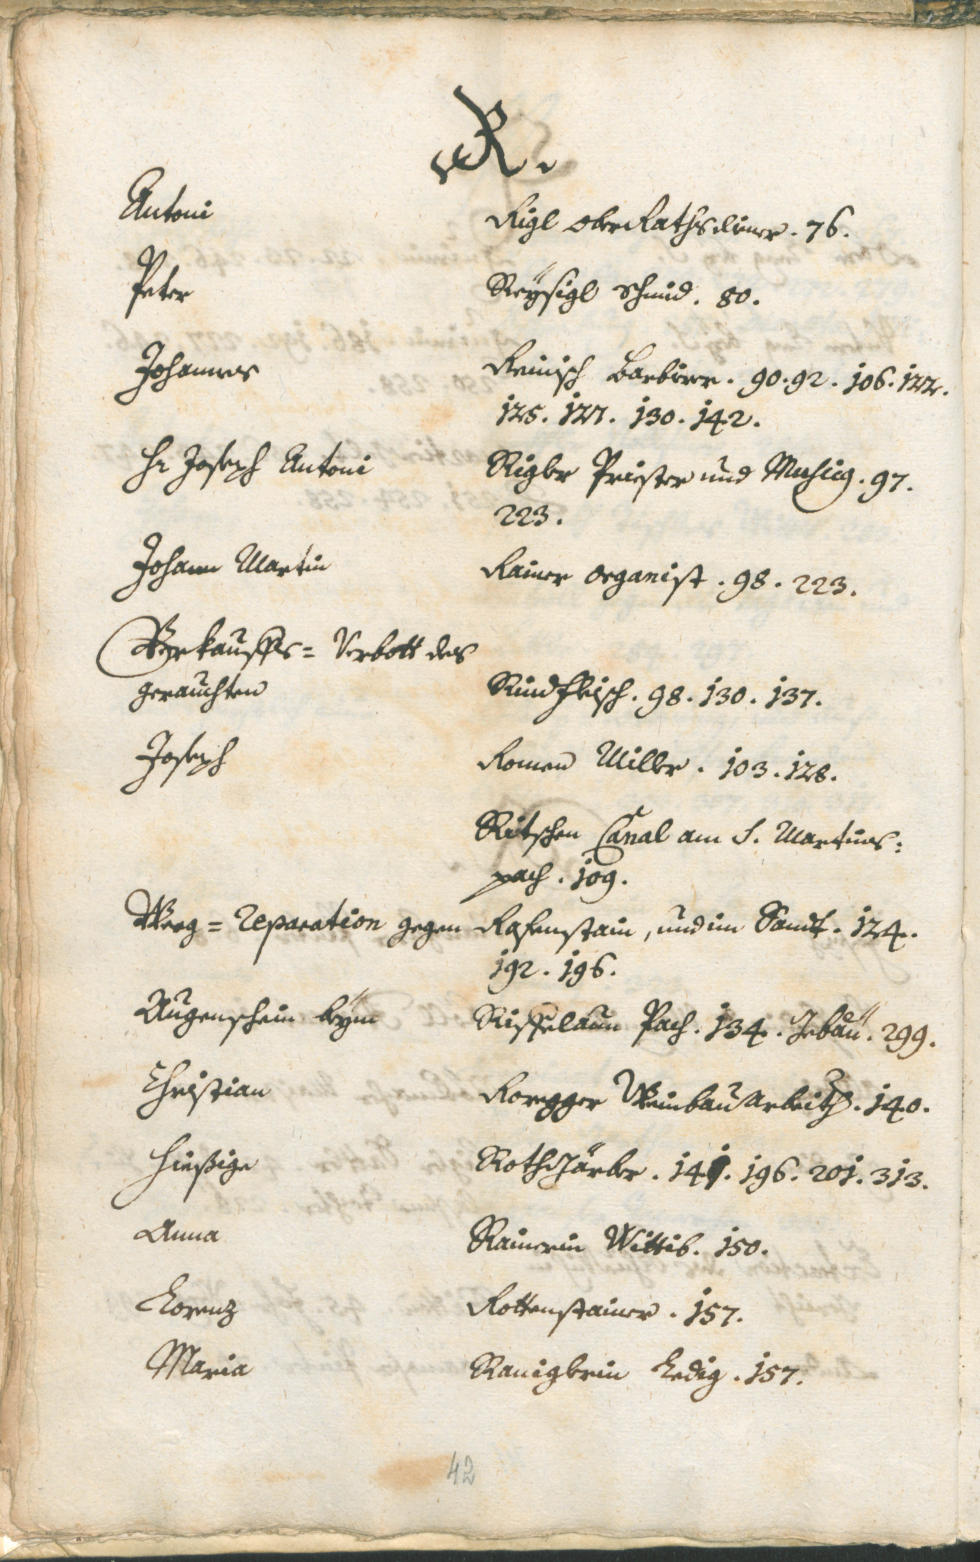 R.
Antoni Rigl ober Rathsdiener. 76.
Peter Reÿsigl Schmid. 80.
Johannes Reinisch Barbierer. 90. 92. 106. 122.
125. 127. 130. 142.
Hr Joseph Antoni Rigler Priester und Musicg. 97.
223.
Johann Martin Rainer Organist. 98. 223.
Verkauffs= Verbott des
gerauchten Rindfleisch. 98. 130. 137.
Joseph Romen Müller. 103. 128.
Ritschen Canal am S. Martins=
pach. 109.
Weeg= reparation gegen Rafenstain, und im Sandt. 124.
192. 196.
Augenschein beÿm Risselaun Pach. 134. Gebäu. 299.
Christian Roregger Weinbau Arbeith. 140.
Hießige Rothfärber. 141. 196. 201. 313.
Anna Rainerin Wittib. 150.
Lorenz Rottenstainer. 157.
Maria Raniglerin Ledig. 157.
42